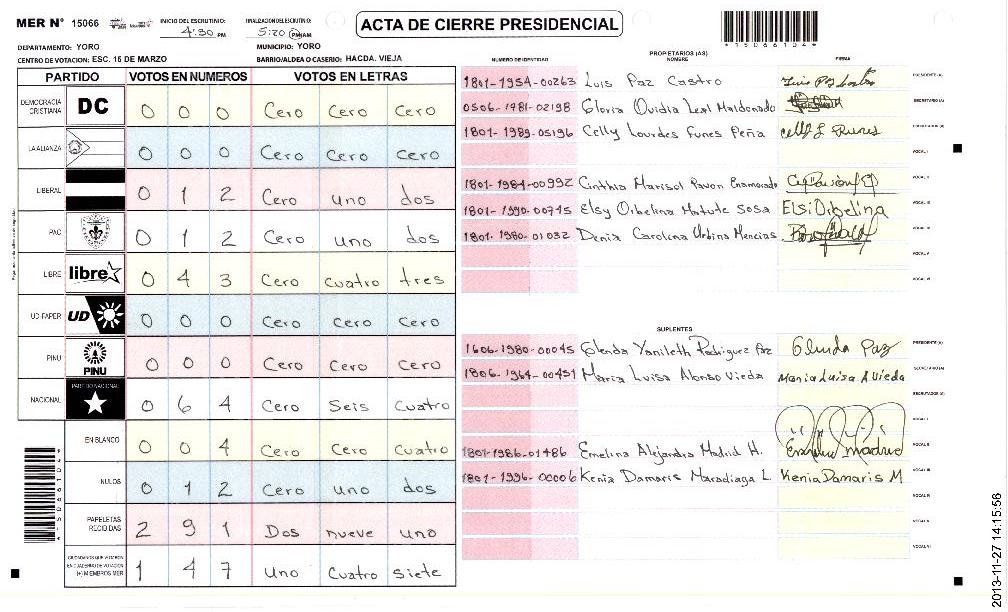 MER N° 15066
INICIO DEL ESCRUTINIO: 4:30 PM
FINALIZACION DEL ESCRUTINIO: 5:20 PM/AM
ACTA DE CIERRE PRESIDENCIAL
DEPARTAMENTO: YORO
MUNICIPIO: YORO
CENTRO DE VOTACION: ESC. 15 DE MARZO
BARRIO/ALDEA O CASERIO: HACDA. VIEJA
PARTIDO VOTOS EN NUMEROS VOTOS EN LETRAS
DEMOCRACIA CRISTIANA DC 0 0 0 Cero Cero Cero
LA ALIANZA 0 0 0 Cero Cero Cero
LIBERAL 0 1 2 Cero uno dos
PAC 0 1 2 Cero uno dos
LIBRE libre 0 4 3 Cero cuatro tres
UD-FAPER UD 0 0 0 Cero Cero Cero
PINU PINU 0 0 0 Cero Cero Cero
NACIONAL PARTIDO NACIONAL 0 6 4 Cero Seis Cuatro
EN BLANCO 0 0 4 Cero Cero Cuatro
NULOS 0 1 2 Cero uno dos
PAPELETAS RECIBIDAS 2 9 1 Dos nueve uno
CIUDADANOS QUE VOTARON EN CUADERNO DE VOTACION (+) MIEMBROS MER 1 4 7 Uno Cuatro siete
PROPIETARIOS (AS)
NUMERO DE IDENTIDAD NOMBRE FIRMA
1801-1954-00263 Luis Paz Castro PRESIDENTE (A)
0506-1981-02198 Gloria Ovidia Leal Maldonado SECRETARIO (A)
1801-1989-05196 Celly Lourdes Funes Peña Celly L Funes ESCRUTADOR (A)
VOCAL I
1801-1984-00992 Cinthia Marisol Pavon Enamorado VOCAL II
1801-1990-00745 Elsy Orbelina Matute Sosa Elsi Orbelina VOCAL III
1801-1980-01032 Denia Carolina Urbina Mencias VOCAL IV
VOCAL V
VOCAL VI
SUPLENTES
1606-1980-00045 Glenda Yanileth Rodriguez Paz Glenda Paz PRESIDENTE (A)
1806-1964-00451 Maria Luisa Alonso Vieda Maria Luisa A Vieda SECRETARIO (A)
ESCRUTADOR (A)
VOCAL I
1801-1986-01486 Emelina Alejandra Madrid H. madrid VOCAL II
1801-1996-00006 Kenia Damaris Maradiaga L. Kenia Damaris M VOCAL III
VOCAL IV
VOCAL V
VOCAL VI
2013-11-27 14:15:56